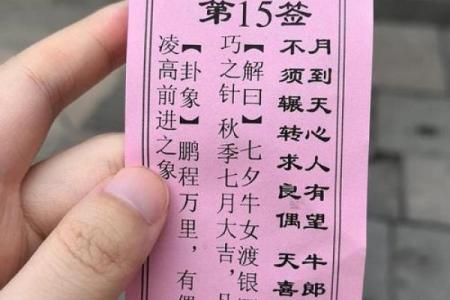 第15签
月到天心人有望 牛郎
不须辗转求良偶 天喜
【解曰】七夕牛女渡银
巧之针 秋季七月大吉，
【卦象】鹏程万里，有
凌高前进之象